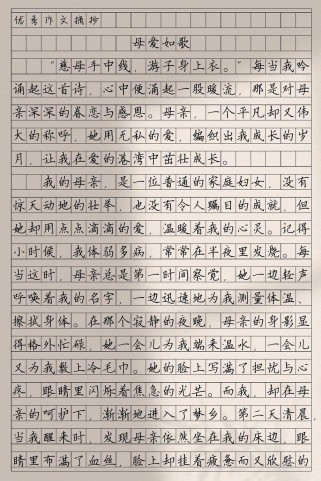 优秀作文摘抄
母爱如歌
“慈母手中线，游子身上衣。”每当我吟
诵起这首诗，心中便涌起一股暖流，那是对母
亲深深的眷恋与感恩。母亲，一个平凡却又伟
大的称呼，她用无私的爱，编织出我成长的岁
月，让我在爱的港湾中茁壮成长。
我的母亲，是一位普通的家庭妇女，没有
惊天动地的壮举，也没有令人瞩目的成就，但
她却用点点滴滴的爱，温暖着我的心灵。记得
小时候，我体弱多病，常常在半夜里发烧。每
当这时，母亲总是第一时间察觉，她一边轻声
呼唤着我的名字，一边迅速地为我测量体温，
擦拭身体。在那个寂静的夜晚，母亲的身影显
得格外忙碌，她一会儿为我端来温水，一会儿
又为我敷上冷毛巾。她的脸上写满了担忧与心
疼，眼睛里闪烁着焦急的光芒。而我，却在母
亲的呵护下，渐渐地进入了梦乡。第二天清晨，
当我醒来时，发现母亲依然坐在我的床边，眼
睛里布满了血丝，脸上却挂着疲惫而又欣慰的